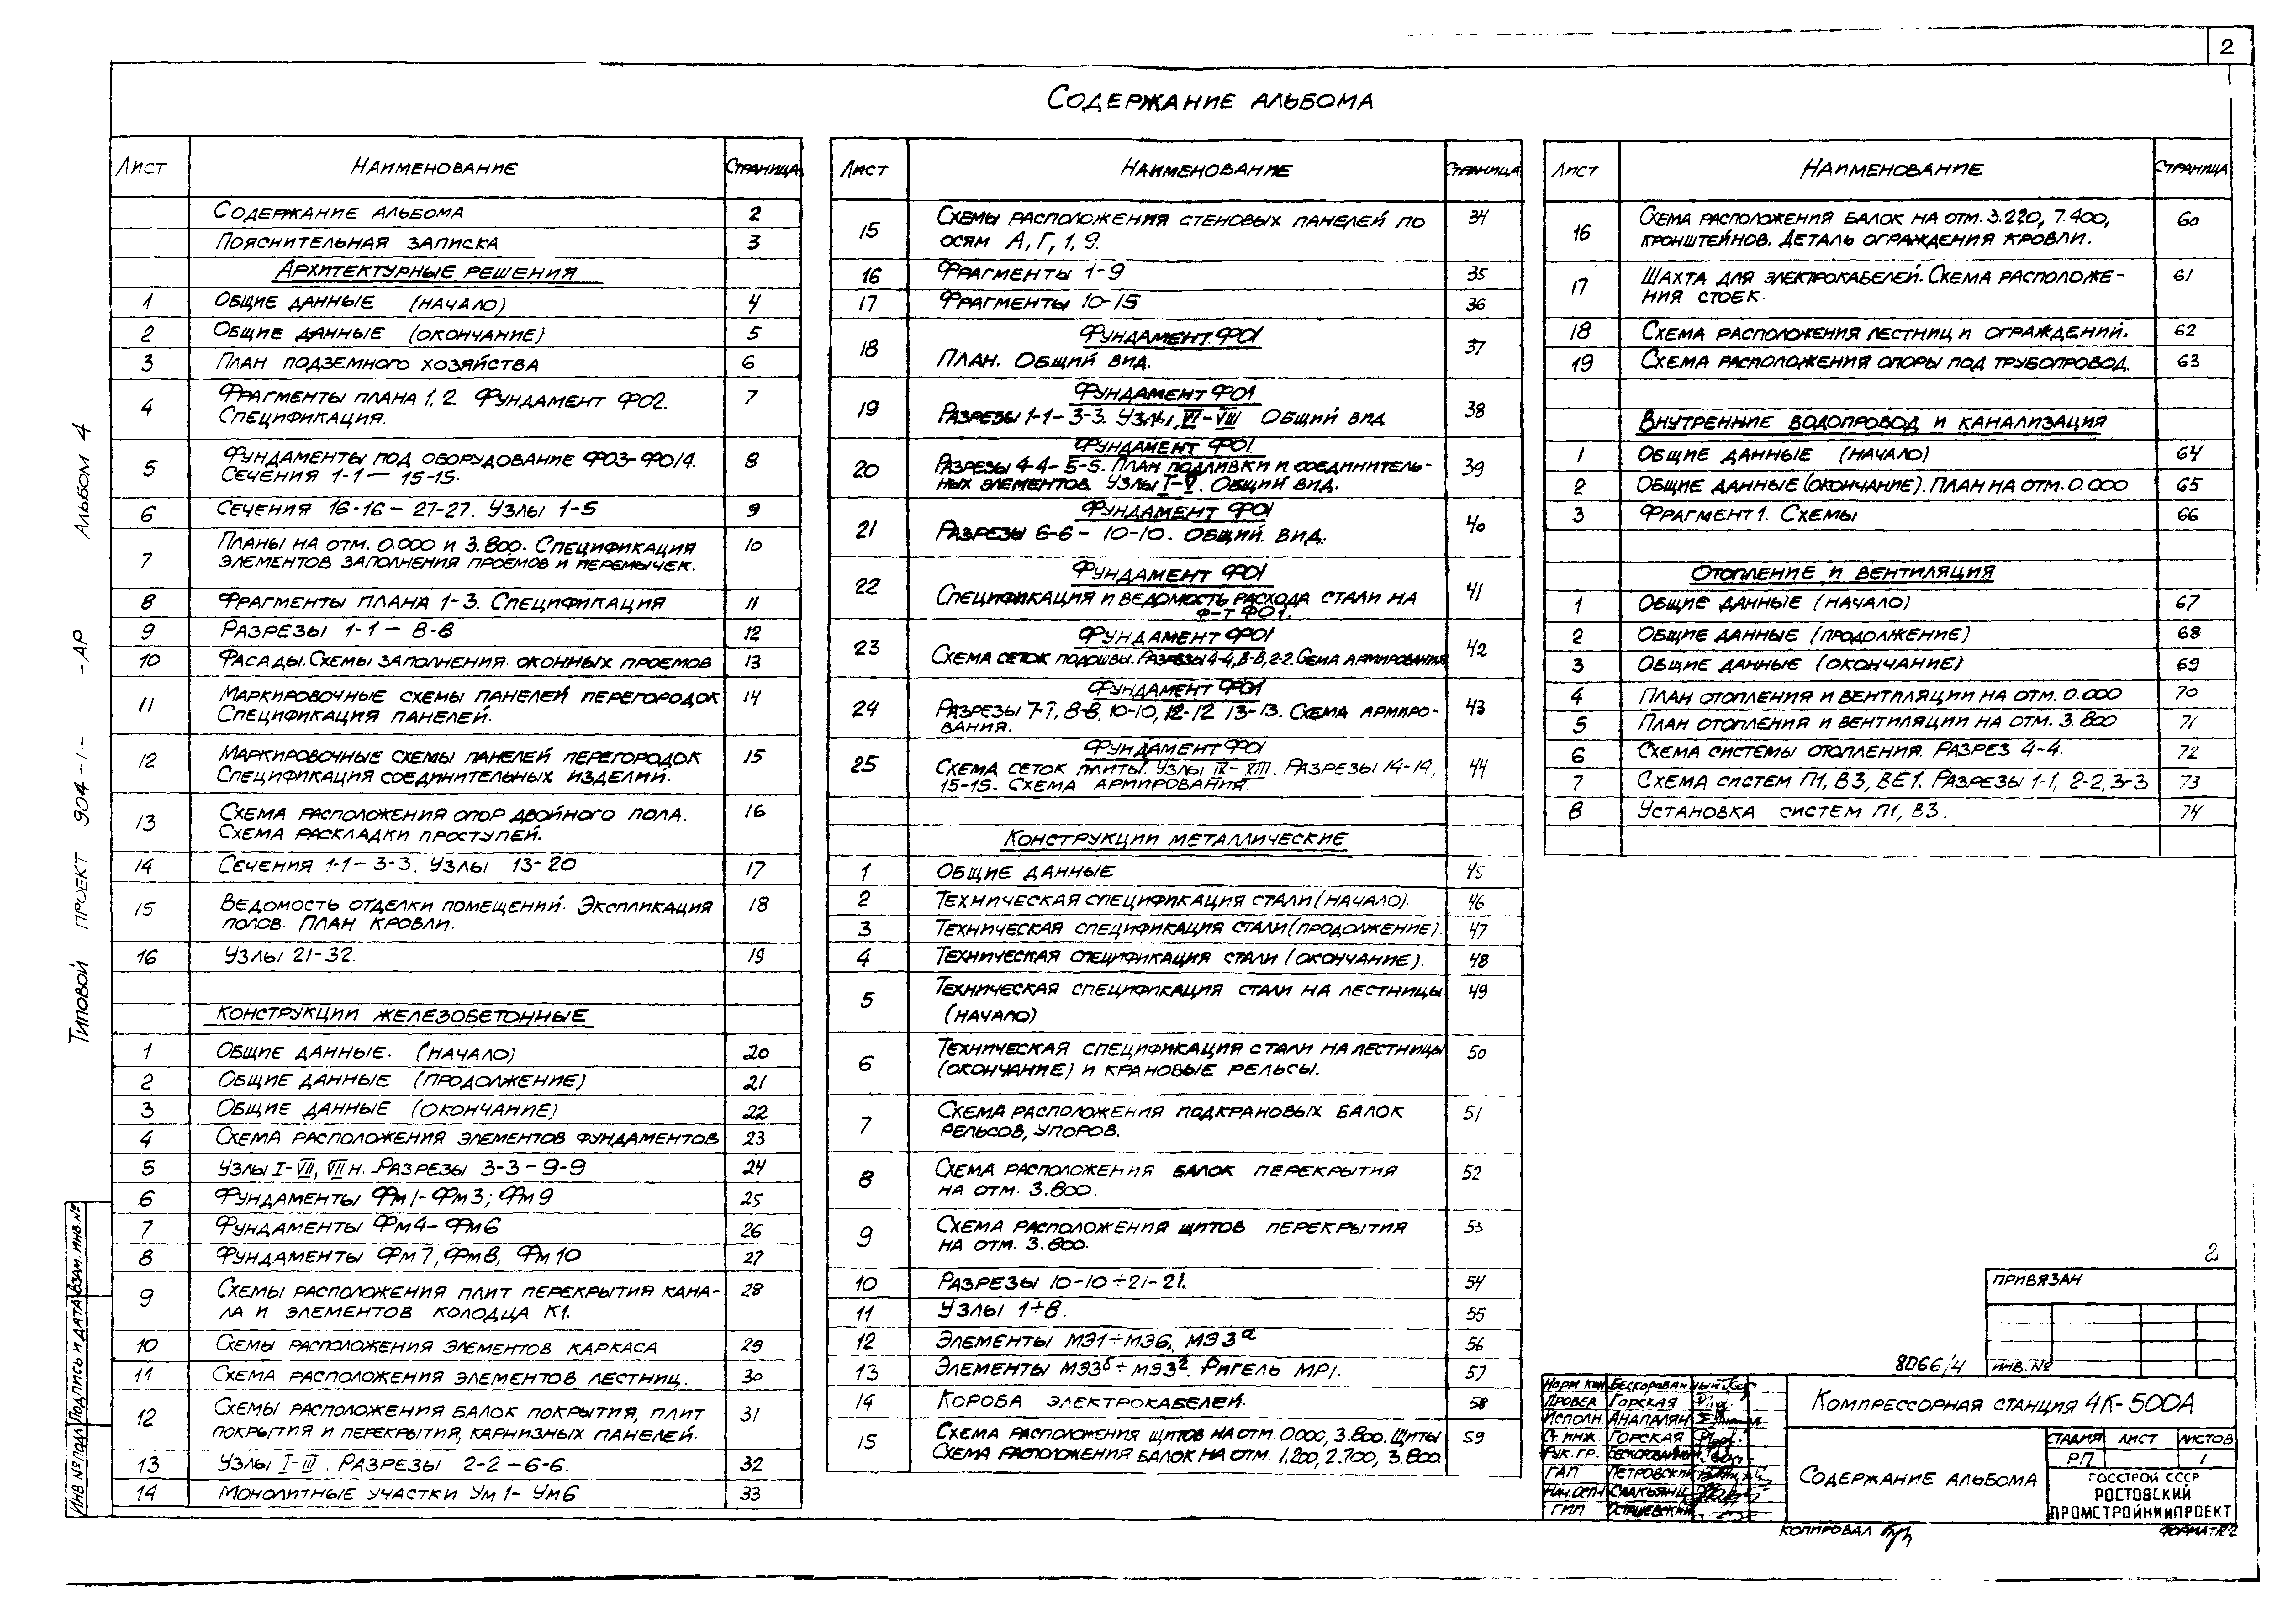 2
СОДЕРЖАНИЕ АЛЬБОМА
ЛИСТ НАИМЕНОВАНИЕ СТРАНИЦА
СОДЕРЖАНИЕ АЛЬБОМА 2
ПОЯСНИТЕЛЬНАЯ ЗАПИСКА 3
АРХИТЕКТУРНЫЕ РЕШЕНИЯ
1 ОБЩИЕ ДАННЫЕ (НАЧАЛО) 4
2 ОБЩИЕ ДАННЫЕ (ОКОНЧАНИЕ) 5
3 ПЛАН ПОДЗЕМНОГО ХОЗЯЙСТВА 6
4 ФРАГМЕНТЫ ПЛАНА 1, 2. ФУНДАМЕНТ ФО2. 7
СПЕЦИФИКАЦИЯ.
5 ФУНДАМЕНТЫ ПОД ОБОРУДОВАНИЕ ФО3-ФО14. 8
СЕЧЕНИЯ 1-1 — 15-15.
6 СЕЧЕНИЯ 16-16 – 27-27. УЗЛЫ 1-5 9
7 ПЛАНЫ НА ОТМ. 0.000 И 3.800. СПЕЦИФИКАЦИЯ 10
ЭЛЕМЕНТОВ ЗАПОЛНЕНИЯ ПРОЕМОВ И ПЕРЕМЫЧЕК.
8 ФРАГМЕНТЫ ПЛАНА 1-3. СПЕЦИФИКАЦИЯ 11
9 РАЗРЕЗЫ 1-1 – 8-8 12
10 ФАСАДЫ. СХЕМЫ ЗАПОЛНЕНИЯ ОКОННЫХ ПРОЕМОВ 13
11 МАРКИРОВОЧНЫЕ СХЕМЫ ПАНЕЛЕЙ ПЕРЕГОРОДОК 14
СПЕЦИФИКАЦИЯ ПАНЕЛЕЙ.
12 МАРКИРОВОЧНЫЕ СХЕМЫ ПАНЕЛЕЙ ПЕРЕГОРОДОК 15
СПЕЦИФИКАЦИЯ СОЕДИНИТЕЛЬНЫХ ИЗДЕЛИЙ.
13 СХЕМА РАСПОЛОЖЕНИЯ ОПОР ДВОЙНОГО ПОЛА. 16
СХЕМА РАСКЛАДКИ ПРОСТУПЕЙ.
14 СЕЧЕНИЯ 1-1 – 3-3. УЗЛЫ 13-20 17
15 ВЕДОМОСТЬ ОТДЕЛКИ ПОМЕЩЕНИЙ. ЭКСПЛИКАЦИЯ 18
ПОЛОВ. ПЛАН КРОВЛИ.
16 УЗЛЫ 21-32. 19
КОНСТРУКЦИИ ЖЕЛЕЗОБЕТОННЫЕ
1 ОБЩИЕ ДАННЫЕ. (НАЧАЛО) 20
2 ОБЩИЕ ДАННЫЕ (ПРОДОЛЖЕНИЕ) 21
3 ОБЩИЕ ДАННЫЕ (ОКОНЧАНИЕ) 22
4 СХЕМА РАСПОЛОЖЕНИЯ ЭЛЕМЕНТОВ ФУНДАМЕНТОВ 23
5 УЗЛЫ I-VII, VIIН. РАЗРЕЗЫ 3-3 – 9-9 24
6 ФУНДАМЕНТЫ ФМ1-ФМ3; ФМ9 25
7 ФУНДАМЕНТЫ ФМ4-ФМ6 26
8 ФУНДАМЕНТЫ ФМ7, ФМ8, ФМ10 27
9 СХЕМЫ РАСПОЛОЖЕНИЯ ПЛИТ ПЕРЕКРЫТИЯ КАНА- 28
ЛА И ЭЛЕМЕНТОВ КОЛОДЦА К1.
10 СХЕМЫ РАСПОЛОЖЕНИЯ ЭЛЕМЕНТОВ КАРКАСА 29
11 СХЕМА РАСПОЛОЖЕНИЯ ЭЛЕМЕНТОВ ЛЕСТНИЦ. 30
12 СХЕМЫ РАСПОЛОЖЕНИЯ БАЛОК ПОКРЫТИЯ, ПЛИТ 31
ПОКРЫТИЯ И ПЕРЕКРЫТИЯ, КАРНИЗНЫХ ПАНЕЛЕЙ.
13 УЗЛЫ I-III. РАЗРЕЗЫ 2-2 – 6-6. 32
14 МОНОЛИТНЫЕ УЧАСТКИ УМ1-УМ6 33
ЛИСТ НАИМЕНОВАНИЕ СТРАНИЦА
15 СХЕМЫ РАСПОЛОЖЕНИЯ СТЕНОВЫХ ПАНЕЛЕЙ ПО 34
ОСЯМ А, Г, 1, 9.
16 ФРАГМЕНТЫ 1-9 35
17 ФРАГМЕНТЫ 10-15 36
ФУНДАМЕНТ ФО1
18 ПЛАН. ОБЩИЙ ВИД. 37
ФУНДАМЕНТ ФО1
19 РАЗРЕЗЫ 1-1 – 3-3. УЗЛЫ VI-VIII ОБЩИЙ ВИД 38
ФУНДАМЕНТ ФО1.
20 РАЗРЕЗЫ 4-4 – 5-5. ПЛАН ПОДЛИВКИ И СОЕДИНИТЕЛЬ- 39
НЫХ ЭЛЕМЕНТОВ УЗЛЫ I-V. ОБЩИЙ ВИД.
ФУНДАМЕНТ ФО1
21 РАЗРЕЗЫ 6-6 – 10-10. ОБЩИЙ ВИД. 40
ФУНДАМЕНТ ФО1
22 СПЕЦИФИКАЦИЯ И ВЕДОМОСТЬ РАСХОДА СТАЛИ НА 41
Ф-Т ФО1.
ФУНДАМЕНТ ФО1
23 СХЕМА СЕТОК ПОДОШВЫ. РАЗРЕЗЫ 4-4, 8-8, 2-2. СХЕМА АРМИРОВАНИЯ 42
ФУНДАМЕНТ ФО1
24 РАЗРЕЗЫ 7-7, 8-8, 10-10, 12-12 13-13. СХЕМА АРМИРО- 43
ВАНИЯ.
ФУНДАМЕНТ ФО1
25 СХЕМА СЕТОК ПЛИТЫ. УЗЛЫ IX-XIII. РАЗРЕЗЫ 14-14, 44
15-15. СХЕМА АРМИРОВАНИЯ.
КОНСТРУКЦИИ МЕТАЛЛИЧЕСКИЕ
1 ОБЩИЕ ДАННЫЕ 45
2 ТЕХНИЧЕСКАЯ СПЕЦИФИКАЦИЯ СТАЛИ (НАЧАЛО). 46
3 ТЕХНИЧЕСКАЯ СПЕЦИФИКАЦИЯ СТАЛИ (ПРОДОЛЖЕНИЕ). 47
4 ТЕХНИЧЕСКАЯ СПЕЦИФИКАЦИЯ СТАЛИ (ОКОНЧАНИЕ). 48
5 ТЕХНИЧЕСКАЯ СПЕЦИФИКАЦИЯ СТАЛИ НА ЛЕСТНИЦЫ 49
(НАЧАЛО)
6 ТЕХНИЧЕСКАЯ СПЕЦИФИКАЦИЯ СТАЛИ НА ЛЕСТНИЦЫ 50
(ОКОНЧАНИЕ) И КРАНОВЫЕ РЕЛЬСЫ.
7 СХЕМА РАСПОЛОЖЕНИЯ ПОДКРАНОВЫХ БАЛОК 51
РЕЛЬСОВ, УПОРОВ.
8 СХЕМА РАСПОЛОЖЕНИЯ БАЛОК ПЕРЕКРЫТИЯ 52
НА ОТМ. 3.800.
9 СХЕМА РАСПОЛОЖЕНИЯ ЩИТОВ ПЕРЕКРЫТИЯ 53
НА ОТМ. 3.800.
10 РАЗРЕЗЫ 10-10÷21-21. 54
11 УЗЛЫ 1÷8. 55
12 ЭЛЕМЕНТЫ МЭ1÷МЭ6, МЭ3а 56
13 ЭЛЕМЕНТЫ МЭ3б÷МЭ3г. РИГЕЛЬ МР1. 57
14 КОРОБА ЭЛЕКТРОКАБЕЛЕЙ. 58
15 СХЕМА РАСПОЛОЖЕНИЯ ЩИТОВ НА ОТМ. 0.000, 3.800. ЩИТЫ 59
СХЕМА РАСПОЛОЖЕНИЯ БАЛОК НА ОТМ. 1.200, 2.700, 3.800.
ЛИСТ НАИМЕНОВАНИЕ СТРАНИЦА
16 СХЕМА РАСПОЛОЖЕНИЯ БАЛОК НА ОТМ. 3.220, 7.400, 60
КРОНШТЕЙНОВ. ДЕТАЛЬ ОГРАЖДЕНИЯ КРОВЛИ.
17 ШАХТА ДЛЯ ЭЛЕКТРОКАБЕЛЕЙ. СХЕМА РАСПОЛОЖЕ- 61
НИЯ СТОЕК.
18 СХЕМА РАСПОЛОЖЕНИЯ ЛЕСТНИЦ И ОГРАЖДЕНИЙ. 62
19 СХЕМА РАСПОЛОЖЕНИЯ ОПОРЫ ПОД ТРУБОПРОВОД. 63
ВНУТРЕННИЕ ВОДОПРОВОД И КАНАЛИЗАЦИЯ
1 ОБЩИЕ ДАННЫЕ (НАЧАЛО) 64
2 ОБЩИЕ ДАННЫЕ (ОКОНЧАНИЕ). ПЛАН НА ОТМ. 0.000 65
3 ФРАГМЕНТ 1. СХЕМЫ 66
ОТОПЛЕНИЕ И ВЕНТИЛЯЦИЯ
1 ОБЩИЕ ДАННЫЕ (НАЧАЛО) 67
2 ОБЩИЕ ДАННЫЕ (ПРОДОЛЖЕНИЕ) 68
3 ОБЩИЕ ДАННЫЕ (ОКОНЧАНИЕ) 69
4 ПЛАН ОТОПЛЕНИЯ И ВЕНТИЛЯЦИИ НА ОТМ. 0.000 70
5 ПЛАН ОТОПЛЕНИЯ И ВЕНТИЛЯЦИИ НА ОТМ. 3.800 71
6 СХЕМА СИСТЕМЫ ОТОПЛЕНИЯ. РАЗРЕЗ 4-4. 72
7 СХЕМА СИСТЕМ П1, В3, ВЕ1. РАЗРЕЗЫ 1-1, 2-2, 3-3 73
8 УСТАНОВКА СИСТЕМ П1, В3. 74
ТИПОВОЙ ПРОЕКТ 904-1- -АР АЛЬБОМ 4
ИНВ. № ПОДЛ ПОДПИСЬ И ДАТА ВЗАМ. ИНВ. №
2
ПРИВЯЗАН
ИНВ. №
8066/4
НОРМ КОН БЕСКОРОВАЙНЫЙ
ПРОВЕР ГОРСКАЯ
ИСПОЛН. АНАПАЛЯН
СТ. ИНЖ. ГОРСКАЯ
РУК. ГР. БЕСКОРОВАЙНЫЙ
ГАП ПЕТРОВСКИЙ
НАЧ. ОСП-1
ГИП ОСТАШЕВСКИЙ
КОМПРЕССОРНАЯ СТАНЦИЯ 4К-500А
СОДЕРЖАНИЕ АЛЬБОМА
СТАДИЯ ЛИСТ ЛИСТОВ
РП 1
ГОССТРОЙ СССР
РОСТОВСКИЙ
ПРОМСТРОЙНИИПРОЕКТ
КОПИРОВАЛ
ФОРМАТ 22